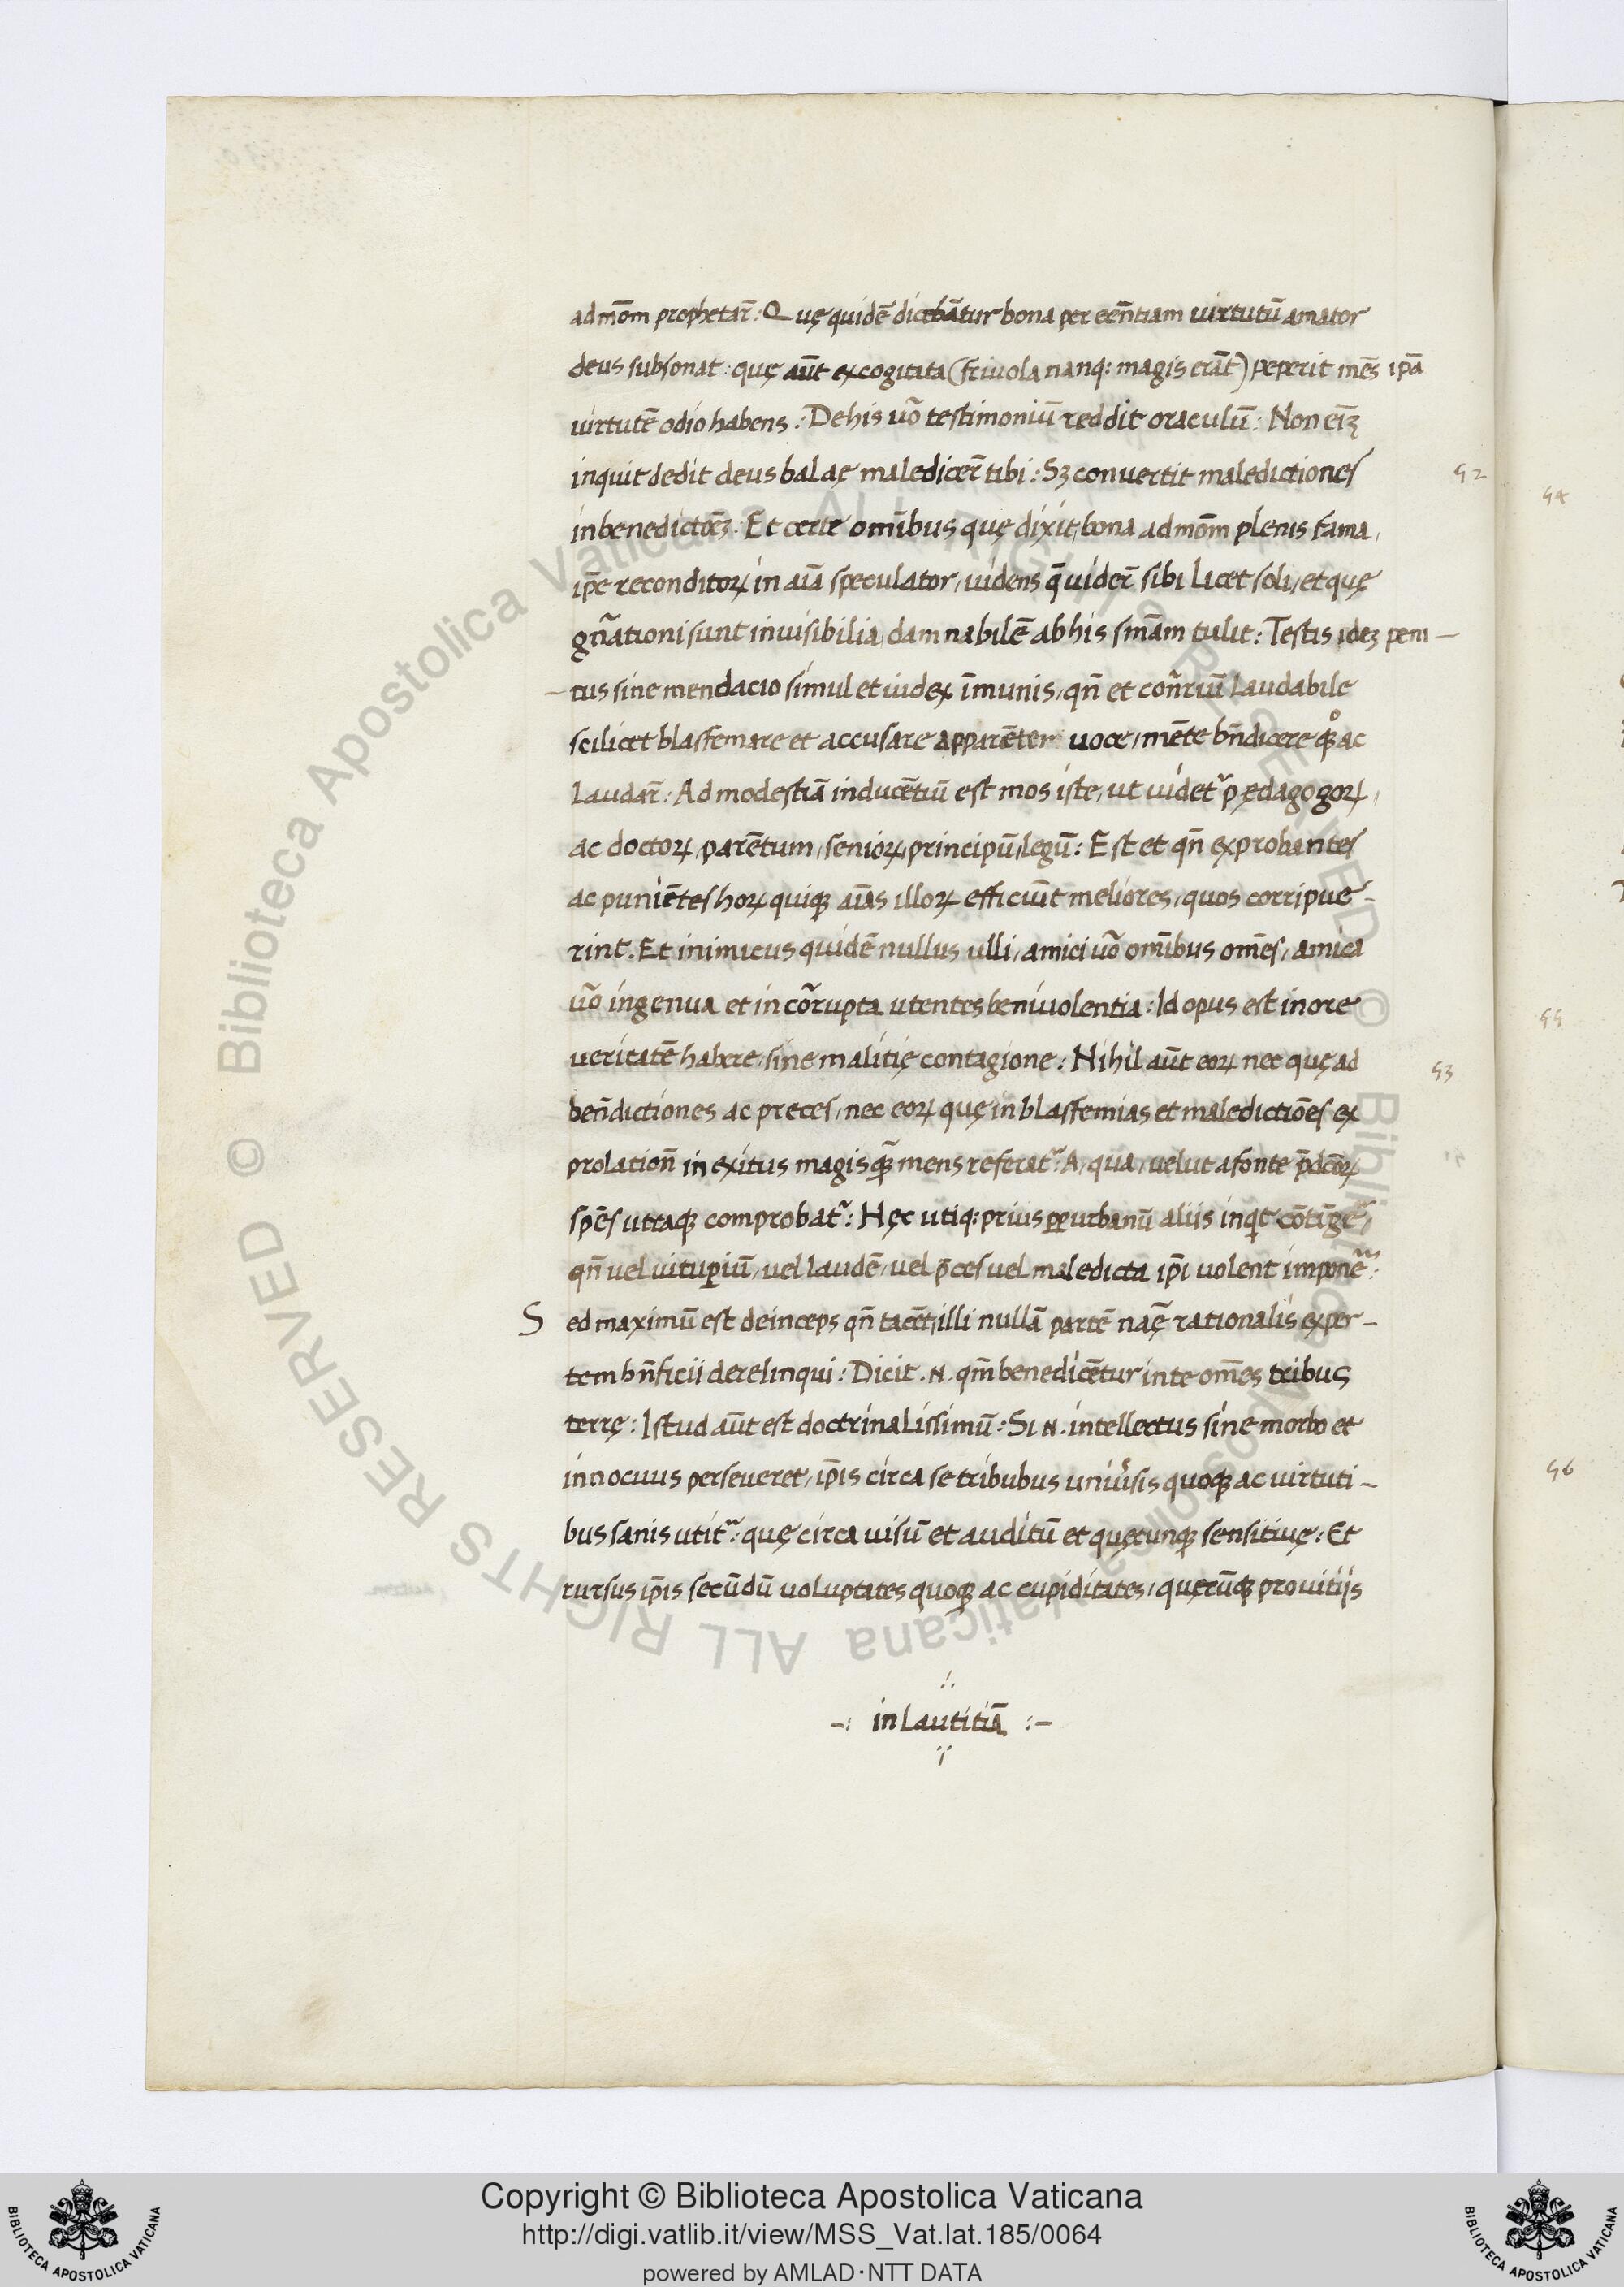 ad mōm prophetar̄: Quę quidē dicebātur bona per eēntiam uirtutū amator
deus subsonat: quę aūt excogitata (friuola nanq: magis erāt) peperit mēs ipā
uirtutē odio habens: De his uō testimoniū reddit oraculū: Non eīꝫ
inquit dedit deus balaę maledicer̄ tibi: Sꝫ conuertit maledictiones
in benedictōēꝫ. Et certe omībus quę dixit, bona ad mōm plenis fama,
ip̄e reconditoꝝ in aīa speculator, uidens q̄ uider̄ sibi licet soli, et quę
gn̄ationi sunt inuisibilia, damnabilē ab his sn̄am tulit: Testis ideꝫ peni-
-tus sine mendacio simul et iudex īmunis, qn̄ et con̄riū laudabile
scilicet blasfemare et accusare apparēter uoce, mēte bn̄dicere qꝫ ac
laudar̄: Ad modestiā inducētiū est mos iste, ut uidetʳ pędagogoꝝ,
ac doctoꝝ, parētum, senioꝝ, principū, legū: Est et qn̄ exprobantes
ac puniētes hoꝝ quiqꝫ aīas illoꝝ efficiūt meliores, quos corripue-
rint. Et inimicus quidē nullus ulli, amici uō omībus om̄es, amica
uō ingenua et incōrupta utentes beniuolentia: Id opus est in ore
ueritatē habere, sine malitię contagione: Nihil aūt eoꝝ nec quę ad
ben̄dictiones ac preces, nec eoꝝ quę in blasfemias et maledictiōes ex
prolation̄ in exitus magis qꝫ mens referatʳ: A, qua, uelut a fonte p̄dc̄oꝝ
spēs utraqꝫ comprobatʳ: Hęc utiq: prius per urbanū aliis inqt cōtīgē,
qn̄ uel uituperiū, uel laudē, uel p̄ces uel maledicta ip̄i uolent imponē:
Sed maximū est deinceps qn̄ tacēt, illi nullā partē naę̄ rationalis exper-
tem bn̄ficii derelinqui: Dicit .N. qm̄ benedicētur in te om̄es tribus
terrę: Istud aūt est doctrinalissimū: Si .N. intellectus sine morbo et
innocuus perseueret, ip̄is circa se tribubus uniūsis quoqꝫ ac uirtuti-
bus sanis utitʳ: quę circa uisū et auditū et quęcunqꝫ sensitiuę: Et
rursus ip̄is secūdū uoluptates quoqꝫ ac cupiditates, quęcūqꝫ pro uitiis
-: in lautitiā :-
52
53
54
55
56
Copyright © Biblioteca Apostolica Vaticana
http://digi.vatlib.it/view/MSS_Vat.lat.185/0064
powered by AMLAD·NTT DATA
BIBLIOTECA APOSTOLICA VATICANA
BIBLIOTECA APOSTOLICA VATICANA
© Biblioteca Apostolica Vaticana ALL RIGHTS RESERVED © Biblioteca Apostolica Vaticana ALL RIGHTS RESERVED